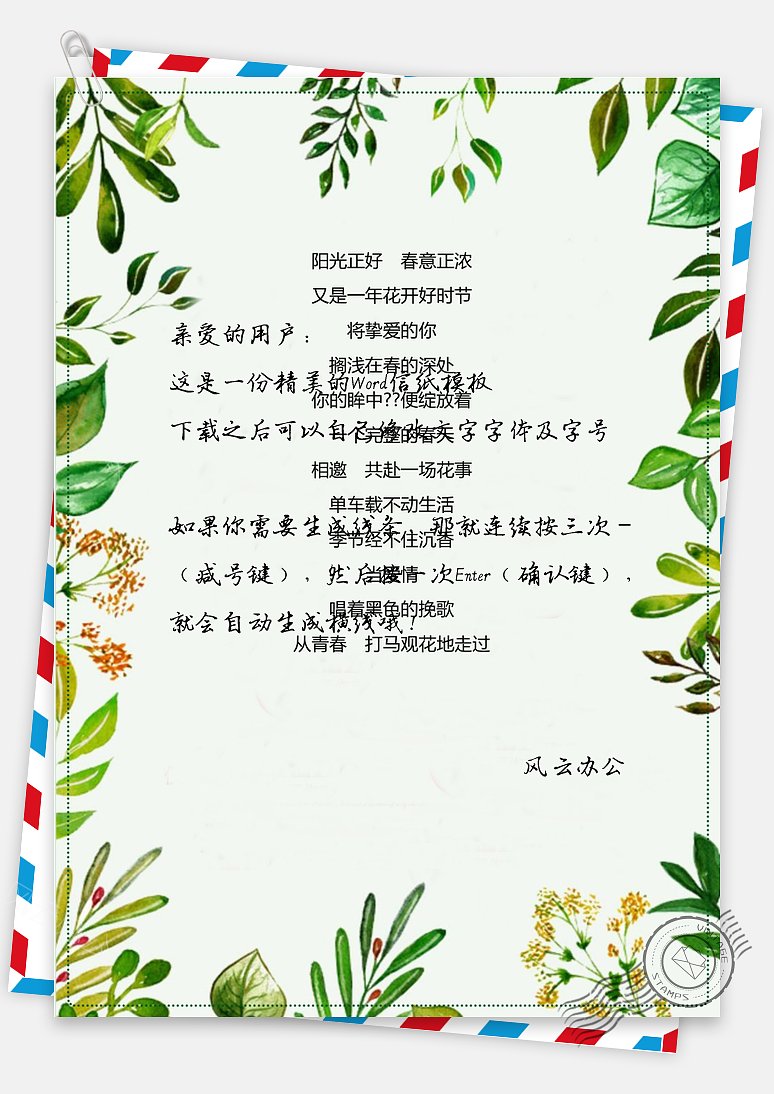 阳光正好　春意正浓
又是一年花开好时节
将挚爱的你
搁浅在春的深处
你的眸中??便绽放着
一个完整的春天
相邀　共赴一场花事
单车载不动生活
季节经不住沉香
当爱情
唱着黑色的挽歌
从青春　打马观花地走过
亲爱的用户：
这是一份精美的Word信纸模板
下载之后可以自己修改文字字体及字号
如果你需要生成线条，那就连续按三次－
（减号键），然后按一次Enter（确认键），
就会自动生成横线哦！
风云办公
VINTAGE
STAMPS